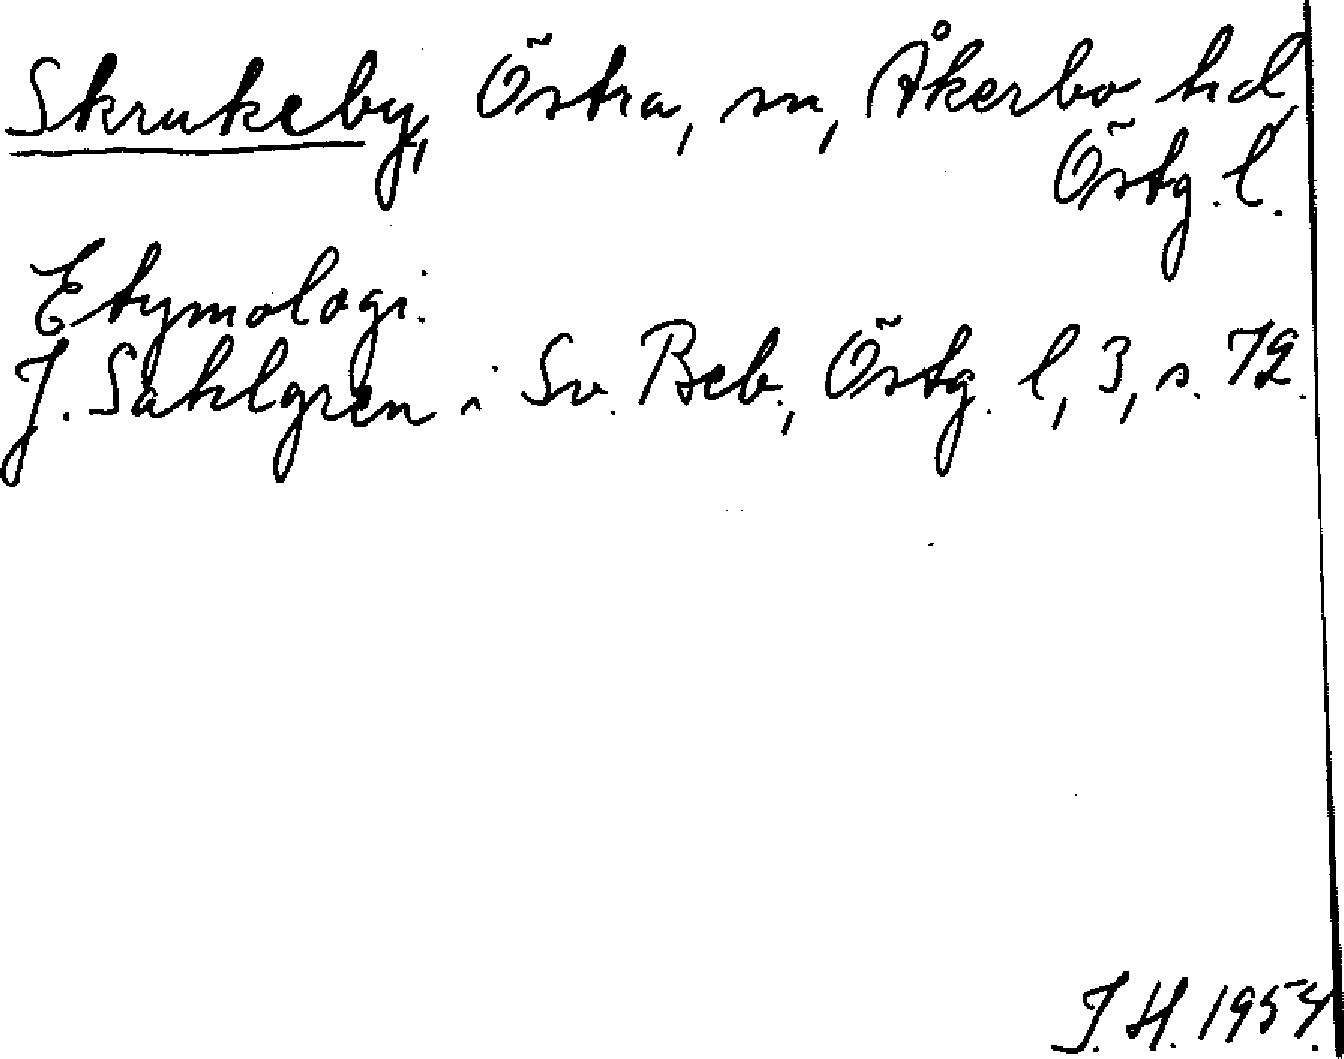 Skrukeby, Östra, sn, Åkerbo hd,
Östg. l.
Etymologi.
J. Sahlgren i Sv. Beb., Östg. l, 3, s. 72.
J. H. 1954.